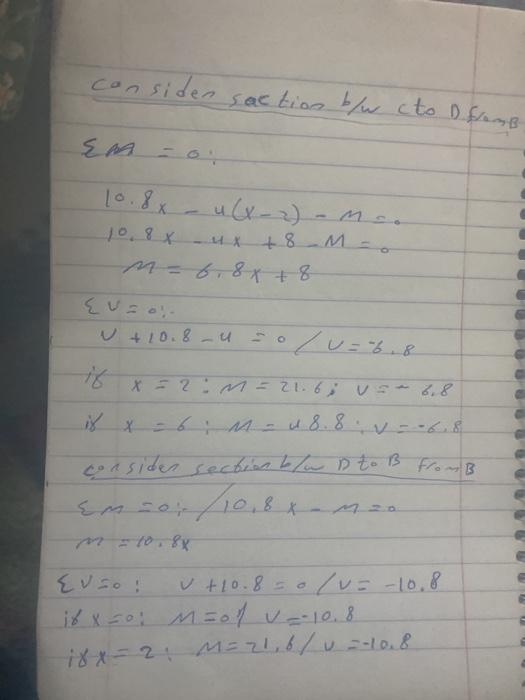 consider section b/w C to D from B
ΣM = 0:
10.8x - 4(x-2) - M = 0
10.8x - 4x + 8 - M = 0
M = 6.8x + 8
ΣV = 0:-
V + 10.8 - 4 = 0 / V = -6.8
if x = 2 : M = 21.6 ; V = - 6.8
if x = 6 : M = 48.8 : V = -6.8
consider section b/w D to B from B
ΣM = 0:- / 10.8x - M = 0
M = 10.8x
ΣV=0 : V + 10.8 = 0 / V = -10.8
if x = 0: M = 0 / V = -10.8
if x = 2: M = 21.6 / V = -10.8